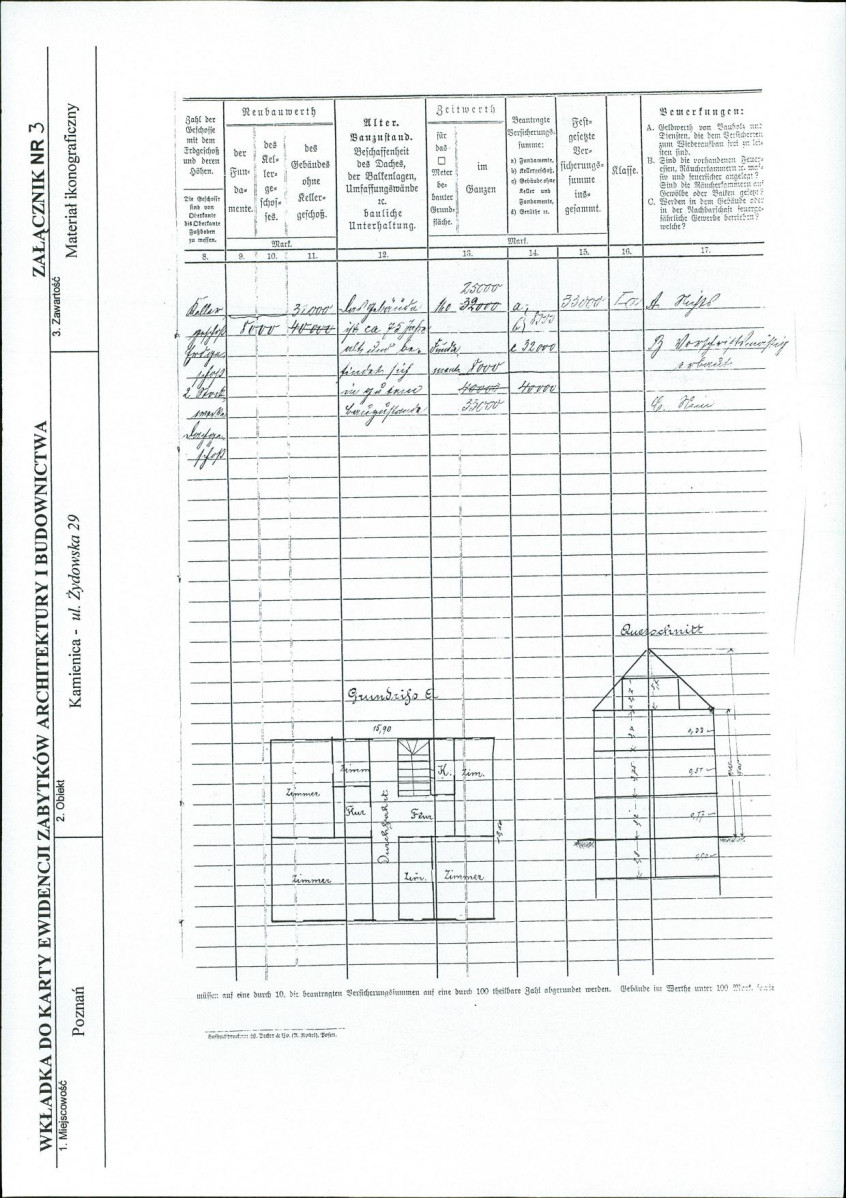 WKŁADKA DO KARTY EWIDENCJI ZABYTKÓW ARCHITEKTURY I BUDOWNICTWA
ZAŁĄCZNIK NR 3
1. Miejscowość
Poznań
2. Obiekt
Kamienica - ul. Żydowska 29
3. Zawartość
Materiał ikonograficzny
Zahl der
Geschosse
mit dem
Erdgeschoß
und deren
Höhen.
Die Geschosse
sind von
Oberkante
bis Oberkante
Fußboden
zu messen.
8.
Neubauwerth
der
Fun-
da-
mente.
des
Kel-
ler-
ge-
schos-
ses.
des
Gebäudes
ohne
Keller-
geschoß.
Mark.
9.
10.
11.
Alter.
Bauzustand.
Beschaffenheit
des Daches,
der Balkenlagen,
Umfassungswände
ꝛc.
bauliche
Unterhaltung.
12.
Zeitwerth
für
das
☐
Meter
be-
bauter
Grund-
fläche.
im
Ganzen
Mark.
13.
Beantragte
Versicherungs-
summe:
a) Fundamente,
b) Kellergeschoß,
c) Gebäude ohne
Keller und
Fundamente,
d) Geräthe ꝛc.
14.
Fest-
gesetzte
Ver-
sicherungs-
summe
ins-
gesammt.
15.
Klasse.
16.
Bemerkungen:
A. Geldwerth von Bauholz und
Diensten, die dem Versicherten
zum Wiederaufbau frei zu lei-
sten sind.
B. Sind die vorhandenen Feuer-
essen, Räucherkammern ꝛc. mas-
siv und feuersicher angelegt?
Sind die Räucherkammern auf
Gewölbe oder Balken gesetzt?
C. Werden in dem Gebäude oder
in der Nachbarschaft feuerge-
fährliche Gewerbe betrieben?
welche?
17.
Keller
geschoß
Erdge
schoß
2 Stock
werke
Dachge
schoß
8000
40000
Das Gebäude
ist ca 75 Jahre
alt und be-
findet sich
in gutem
Bauzustande
25000
32000
Funda
mente 8000
40000
33000
a,
b) 8000
c 32000
40000
33000
A. Nichts
B Vorschriftsmäßig
erbaut
C. Nein
Grundriß E
15,90
Zimmer
Zimm
Flur
Durchfahrt
Flur
K.
Zim.
Zimmer
Zim.
Zimmer
Querschnitt
müssen auf eine durch 10, die beantragten Versicherungssummen auf eine durch 100 theilbare Zahl abgerundet werden. Gebäude im Werthe unter 100 Mark
Hofbuchdruckerei W. Decker & Co. (A. Röstel), Posen.